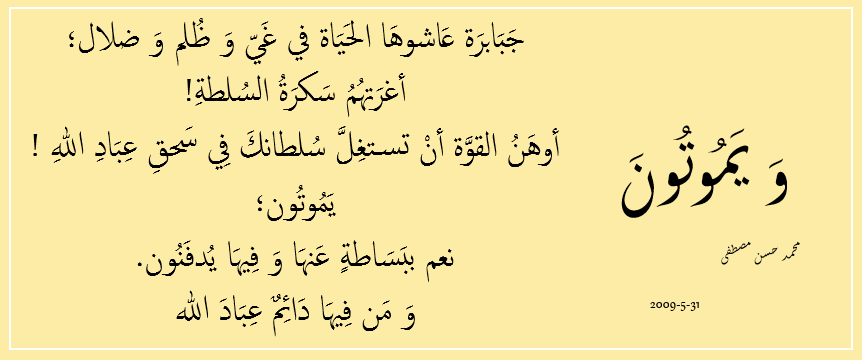 وَ يَمُوتُونَ
محمد حسن مصطفى
2009-5-31
جَبَابرَة عَاشوهَا الحَيَاة في غَيّ وَ ظُلم وَ ضلال؛
أغرَتهُمُ سَكرَةُ السُلطةِ!
أوهَنُ القوَّة أنْ تستغِلَّ سُلطانكَ فِي سَحقِ عِبَادِ اللهِ !
يَمُوتُون؛
نعم ببَسَاطةٍ عَنهَا وَ فِيهَا يُدفَنُون.
وَ مَن فِيهَا دَائِمٌ عِبَادَ الله